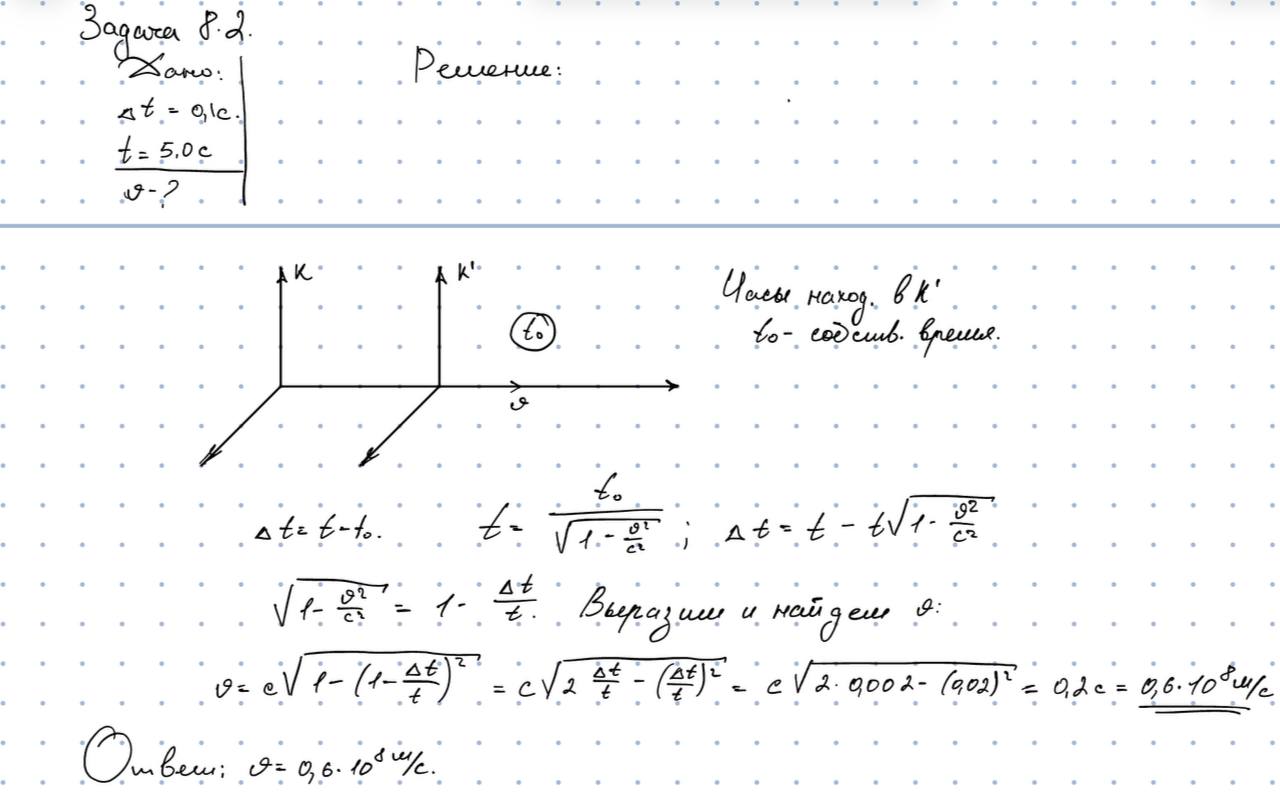 Задача 8.2.
Дано:
Δt = 0,1с.
t = 5,0 с
𝜗 - ?
Решение:
K
K'
t₀
𝜗
Часы наход. в K'
t₀ - собств. время.
Δt = t - t₀. t = t₀/√(1 - 𝜗²/c²) ; Δt = t - t√(1 - 𝜗²/c²)
√(1 - 𝜗²/c²) = 1 - Δt/t. Выразим и найдем 𝜗:
𝜗 = c√(1 - (1 - Δt/t)²) = c√(2 Δt/t - (Δt/t)²) = c√(2 · 0,002 - (0,02)²) = 0,2c = 0,6 · 10⁸ м/с
Ответ: 𝜗 = 0,6 · 10⁸ м/с.